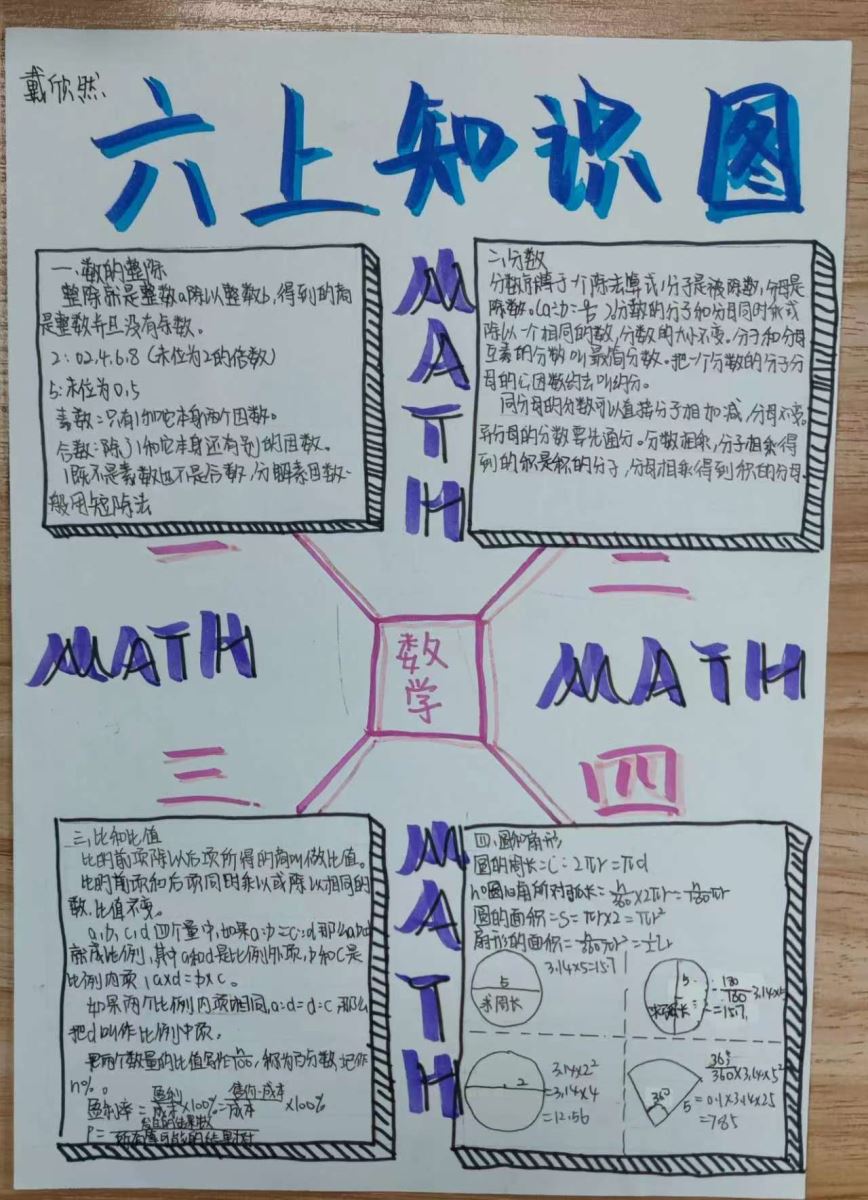 戴欣然
六上知识图
一、数的整除
整除就是整数a除以整数b,得到的商
是整数并且没有余数。
2:02.4.6.8(末位为2的倍数)
5:末位为0.5
素数:只有1和它本身两个因数。
合数:除了1和它本身还有别的因数。
1既不是素数也不是合数,分解素因数一
般用短除法
MATH
二、分数
分数有情于一个除法算式,分子是被除数,分母是
分数的分子和分母同时乘或
除以一个相同的数,分数的大小不变。分子和分母
互素的分数叫最简分数。把一个分数的分子分
母的公因数约去叫约分。
同分母的分数可以直接分子相加减,分母不变。
异分母的分数要先通分。分数相乘,分子相乘得
到的积是积的分子,分母相乘得到积的分母。
一
二
MATH
数学
MATH
三
四
三、比和比值
比的前项除以后项所得的商叫做比值。
比的前项和后项同时乘以或除以相同的
数,比值不变。
a,b,c,d四个量中,如果a:b=c:d那么abcd
就成比例,其中a和d是比例外项,b和c是
比例内项,a×d=b×c。
如果两个比例内项相同,a:d=d:c那么
把d叫作比例中项。
把两个数量的比值写作n/100,称为百分数,记作
n%。
盈利率=盈利/成本×100%=售价-成本/成本×100%
P=
MATH
四、圆和扇形
圆的周长=C=2πr=πd
n°圆心角所对弧长=n/360×2πr=n/180πr
圆的面积=S=πr×2=πr²
扇形的面积=n/360πr²=½lr
5
求周长
3.14×5=15.7
5
180/180×3.14×5
=15.7
2
3.14×2²
=3.14×4
=12.56
36°
5
36/360×3.14×5²
=0.1×3.14×25
=7.85